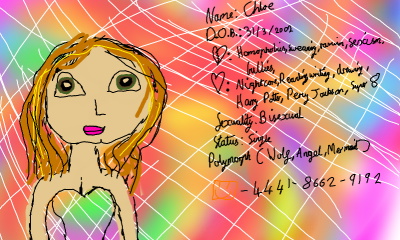 Name: Chloe
D.O.B.: 31/3/2002
: Homophobics, swearing, racism, sexism,
bullies,
: Nightcore, Reading, writing, drawing,
Harry Potter, Percy Jackson,
Sexuality: Bisexual
Status: Single
Polymorph (Wolf, Angel, Mermaid)
- 4441-8662-9192